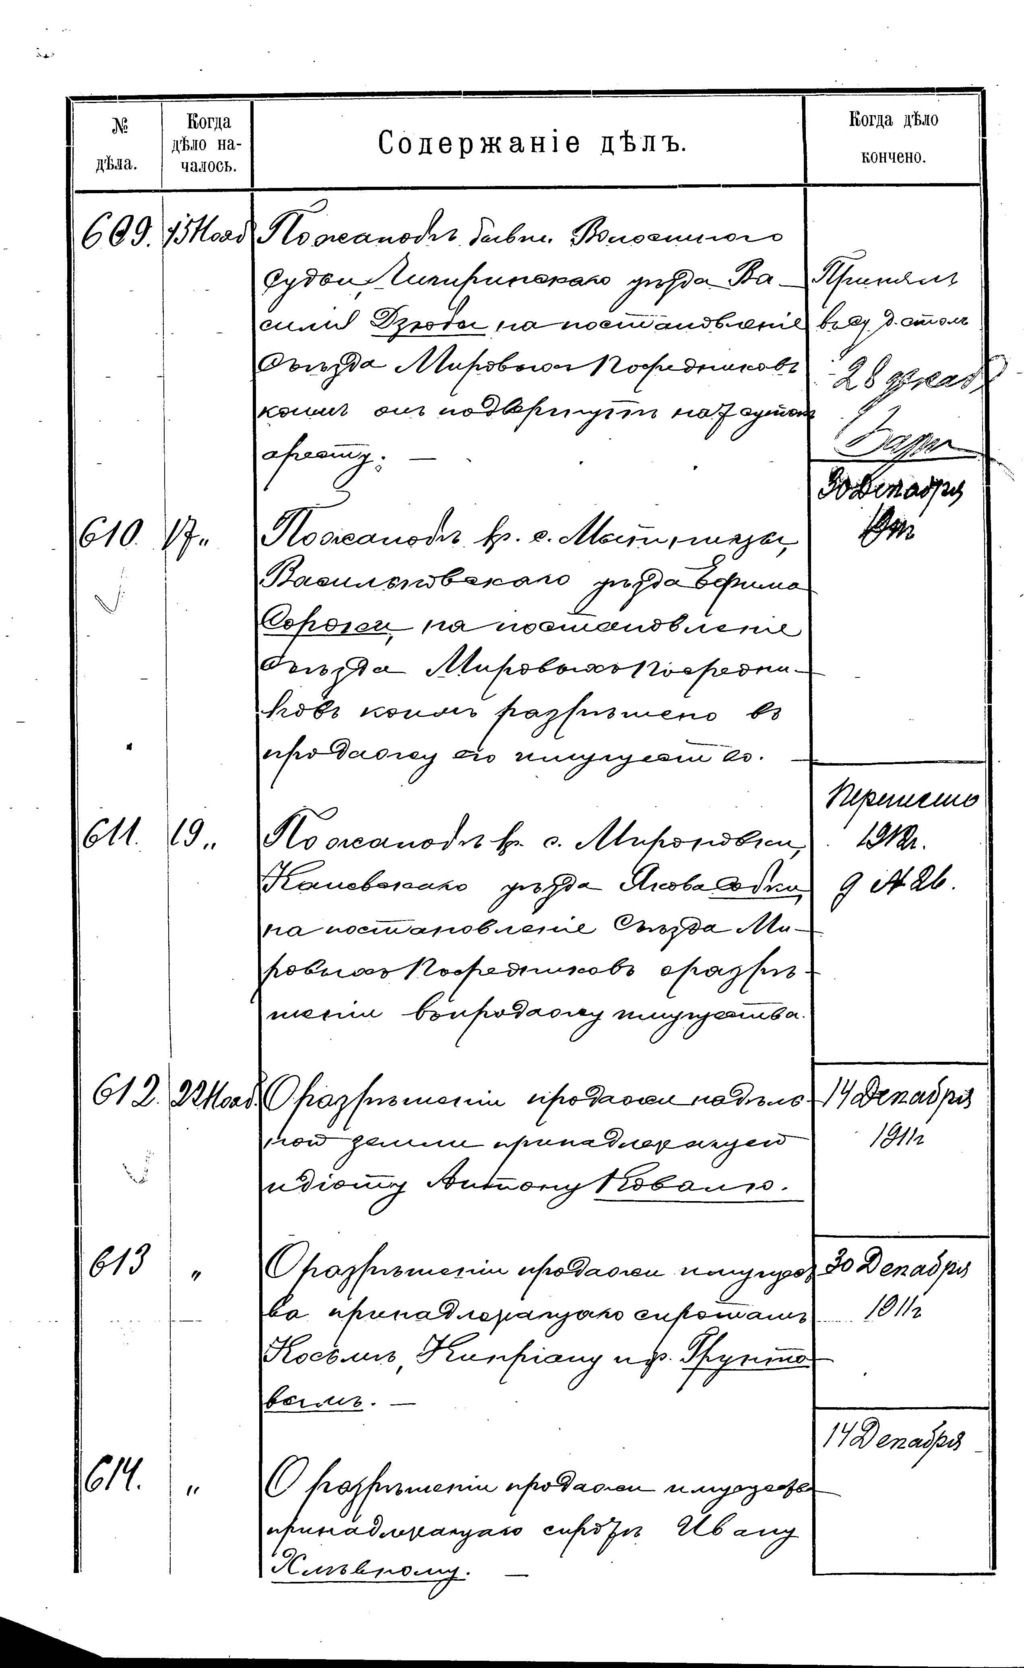 № дѣла.
Когда дѣло на-
чалось.
Содержаніе дѣлъ.
Когда дѣло кончено.
609. 15 Нояб По жалобѣ бывш. Волостного
судьи, Чигиринскаго уѣзда Ва-
силія Дзюбы на постановленіе
Съѣзда Мировыхъ Посредниковъ
коимъ онъ подвергнутъ на 7 сутокъ
аресту. —
Принялъ
въ суд. д. столъ
28 декаб
610. 17 „ По жалобѣ кр. с. Мытницы,
Васильковскаго уѣзда Ефима
Сороки, на постановленіе
Съѣзда Мировыхъ Посредни-
ковъ коимъ разрѣшено въ
продажу его имущество. —
30 Декабря
1911г
611. 19 „ По жалобѣ кр. с. Мироновки,
Каневскаго уѣзда Якова Собки,
на постановленіе Съѣзда Ми-
ровыхъ Посредниковъ о разрѣ-
шеніи въ продажу имущества.
Перенесено
1912г.
д № 26.
612. 22 Нояб. О разрѣшеніи продажи надѣль-
ной земли принадлежащей
идіоту Антону Ковалю.
14 Декабря
1911г
613 „ О разрѣшеніи продажи имущест
ва принадлежащаго сиротамъ
Косьмѣ, Кипріану и др. Грунто
вымъ. —
30 Декабря
1911г
614. „ О разрѣшеніи продажи имущества
принадлежащаго сиротѣ Ивану
Хмѣвному. —
14 Декабря